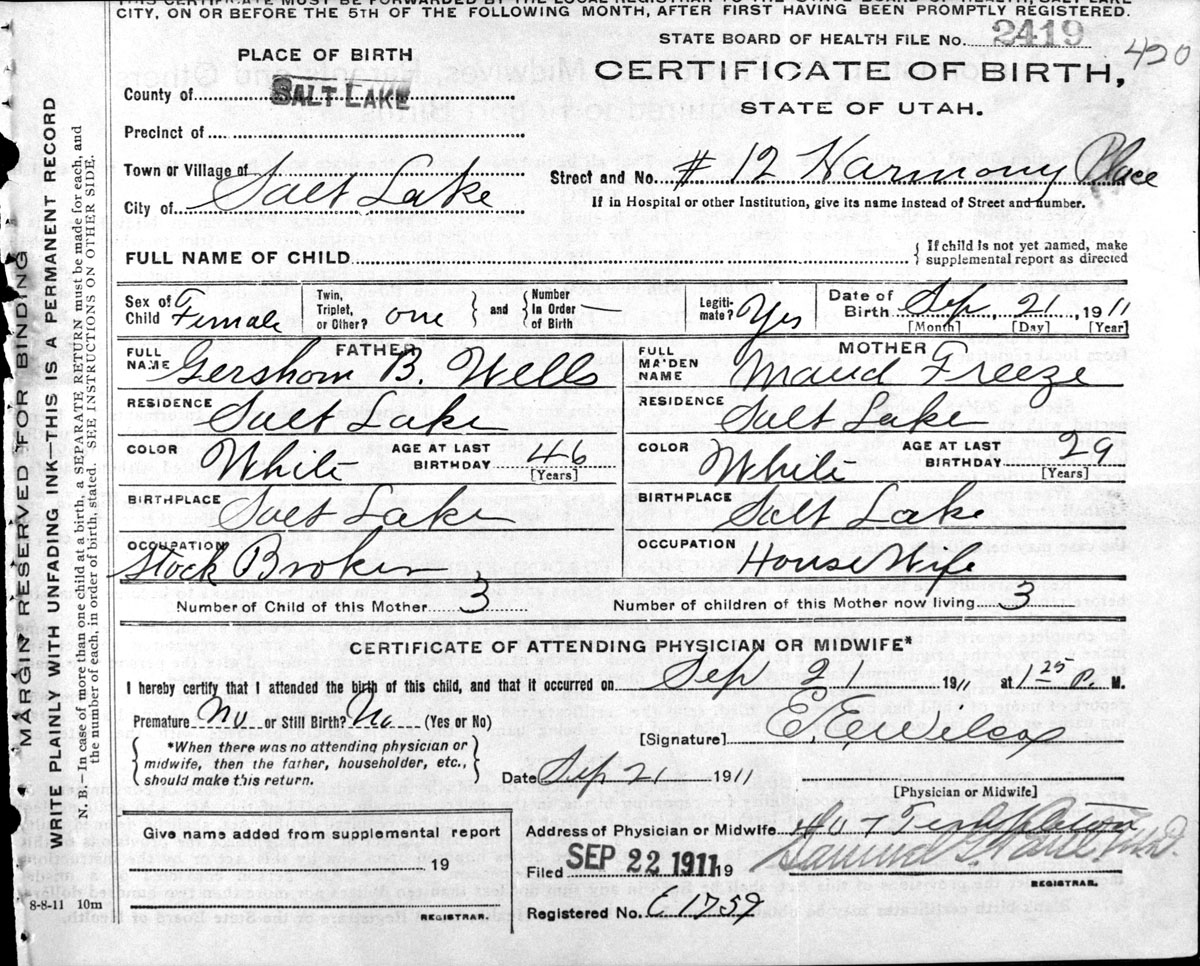 CITY, ON OR BEFORE THE 5TH OF THE FOLLOWING MONTH, AFTER FIRST HAVING BEEN PROMPTLY REGISTERED.
STATE BOARD OF HEALTH FILE No. 2419
420
PLACE OF BIRTH
CERTIFICATE OF BIRTH,
STATE OF UTAH.
County of SALT LAKE
Precinct of
Town or Village of
City of Salt Lake
Street and No. # 12 Harmony Place
If in Hospital or other Institution, give its name instead of Street and number.
FULL NAME OF CHILD
{ If child is not yet named, make supplemental report as directed
Sex of Child Female
Twin, Triplet, or Other? one } and { Number In Order of Birth —
Legitimate? Yes
Date of Birth Sep 21, 1911
[Month] [Day] [Year]
FATHER
FULL NAME Gershom B. Wells
RESIDENCE Salt Lake
COLOR White AGE AT LAST BIRTHDAY 46
[Years]
BIRTHPLACE Salt Lake
OCCUPATION Stock Broker
MOTHER
FULL MAIDEN NAME Maud Freeze
RESIDENCE Salt Lake
COLOR White AGE AT LAST BIRTHDAY 29
[Years]
BIRTHPLACE Salt Lake
OCCUPATION House Wife
Number of Child of this Mother 3
Number of children of this Mother now living 3
CERTIFICATE OF ATTENDING PHYSICIAN OR MIDWIFE*
I hereby certify that I attended the birth of this child, and that it occurred on Sep 21 1911 at 1 25 P. M.
Premature No or Still Birth? No (Yes or No)
{ *When there was no attending physician or midwife, then the father, householder, etc., should make this return. }
[Signature] E. E. Wilcox
Date Sep 21 1911
[Physician or Midwife]
Give name added from supplemental report
19
REGISTRAR.
8-8-11 10m
Address of Physician or Midwife
Filed SEP 22 1911 19
REGISTRAR.
Registered No. C 1759
MARGIN RESERVED FOR BINDING
WRITE PLAINLY WITH UNFADING INK—THIS IS A PERMANENT RECORD
N. B.—In case of more than one child at a birth, a SEPARATE RETURN must be made for each, and
the number of each, in order of birth, stated. SEE INSTRUCTIONS ON OTHER SIDE.